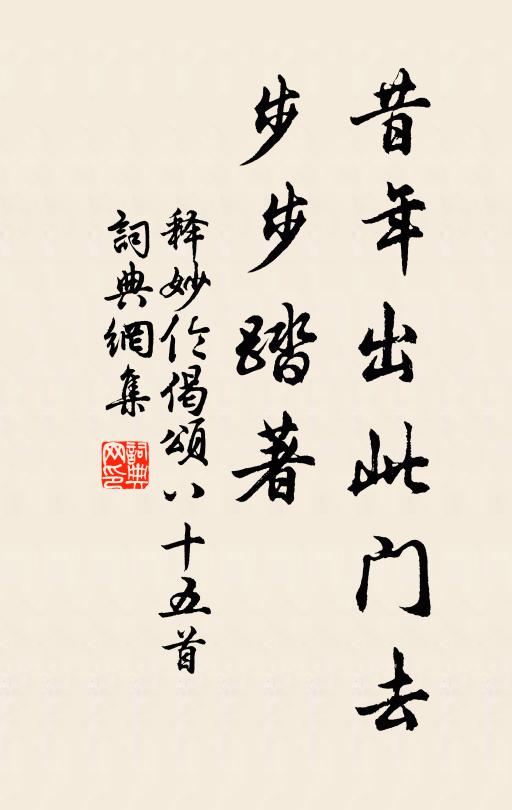 昔年出此门去
步步踏著
释妙伦偈頌八十五首
詞典網集
詞典網印